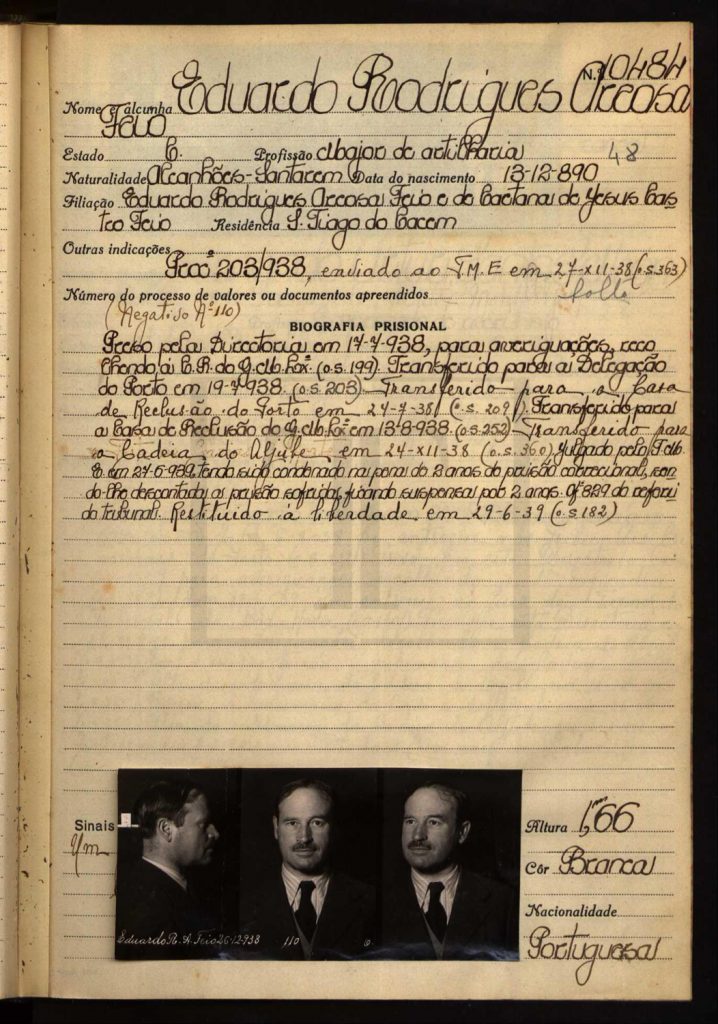 N.º 10484
Nome e alcunha Eduardo Rodrigues Areosa
Feio
Estado C. Profissão Major de artilharia 48
Naturalidade Alcanhões-Santarem Data do nascimento 13-12-890
Filiação Eduardo Rodrigues Areosa Feio e de Caetana de Jesus Cas-
tro Feio Residência S. Tiago do Cacem
Outras indicações
Procº 203/938, enviado ao T.M.E em 27-XII-38 (o.s.363)
Número do processo de valores ou documentos apreendidos
(Negativo Nº 110)
BIOGRAFIA PRISIONAL
Preso pela Directoria em 17-7-938, para averiguações, reco-
lhendo á C.R. do G.M.Lxª. (o.s.199). Transferido para a Delegação
do Porto em 19-7-938. (o.s.203) Transferido para a Casa
de Reclusão do Porto em 27-7-38 (o.s.209). Transferido para
a Casa de Reclusão do G.M.Lxª em 13-8-938. (o.s.252) Transferido para
a Cadeia do Aljube em 24-XII-38 (o.s.360) Julgado pelo T.M.
E. em 27-6-939, tendo sido condenado na pena de 2 anos de prisão correcional, sen-
do-lhe descontada a prisão sofrida, ficando suspensa por 2 anos. Of. 829 do referi-
do tribunal. Restituido á liberdade em 29-6-39 (o.s.182)
Sinais
Um
Eduardo R. A. Feio 26-12-938 110
Altura 1,m66
Côr Branca
Nacionalidade
Portuguesa